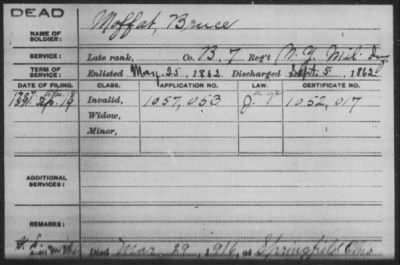 DEAD
NAME OF SOLDIER: Moffat, Bruce
SERVICE: Late rank, Co. B. 7 Reg't N.Y. Mil. Inf.
TERM OF SERVICE: Enlisted May 25, 1862 Discharged Sept. 5, 1862
DATE OF FILING. CLASS. APPLICATION NO. LAW. CERTIFICATE NO.
1891 Invalid, 1057,053 1052,017
Widow,
Minor,
ADDITIONAL SERVICES:
REMARKS:
Died Mar 29, 1916, at Springfield